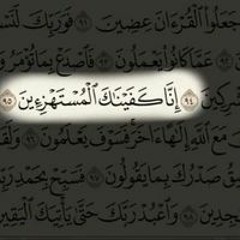 جَعَلُوا۟ ٱلْقُرْءَانَ عِضِينَ ٩١ فَوَرَبِّكَ لَنَسْـَٔ
عَمَّا كَانُوا۟ يَعْمَلُونَ ٩٣ فَٱصْدَعْ بِمَا تُؤْمَرُ وَ
رِكِينَ ٩٤ إِنَّا كَفَيْنَـٰكَ ٱلْمُسْتَهْزِءِينَ ٩٥
مَعَ ٱللَّهِ إِلَـٰهًا ءَاخَرَ فَسَوْفَ يَعْلَمُونَ ٩٦ وَلَقَ
ضِيقُ صَدْرُكَ بِمَا يَقُولُونَ ٩٧ فَسَبِّحْ بِحَمْدِ رَبِّ
ـٰجِدِينَ ٩٨ وَٱعْبُدْ رَبَّكَ حَتَّىٰ يَأْتِيَكَ ٱلْيَقِينُ